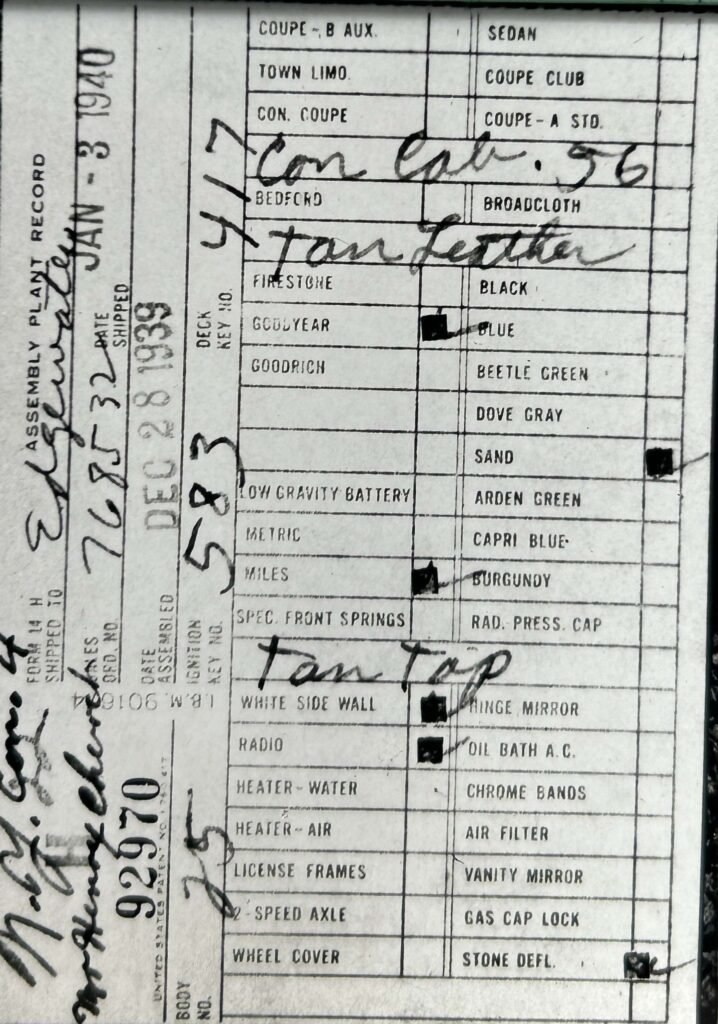 ASSEMBLY PLANT RECORD
FORM 14 H
SHIPPED TO Edgewater
LINES ORD. NO. 768532
DATE SHIPPED JAN - 3 1940
DATE ASSEMBLED DEC 28 1939
IGNITION KEY NO. 583
DECK KEY NO. 417
I.B.M. 90164
N.Y. Com 4
Mr Henry Church
92970
UNITED STATES PATENT NO.
BODY NO. 25
COUPE - B AUX. SEDAN
TOWN LIMO. COUPE CLUB
CON. COUPE COUPE - A STD.
Con Cab. 56
BEDFORD BROADCLOTH
Tan Leather
FIRESTONE BLACK
GOODYEAR BLUE
GOODRICH BEETLE GREEN
DOVE GRAY
SAND
LOW GRAVITY BATTERY ARDEN GREEN
METRIC CAPRI BLUE
MILES BURGUNDY
SPEC. FRONT SPRINGS RAD. PRESS. CAP
Tan Top
WHITE SIDE WALL HINGE MIRROR
RADIO OIL BATH A.C.
HEATER - WATER CHROME BANDS
HEATER - AIR AIR FILTER
LICENSE FRAMES VANITY MIRROR
2-SPEED AXLE GAS CAP LOCK
WHEEL COVER STONE DEFL.